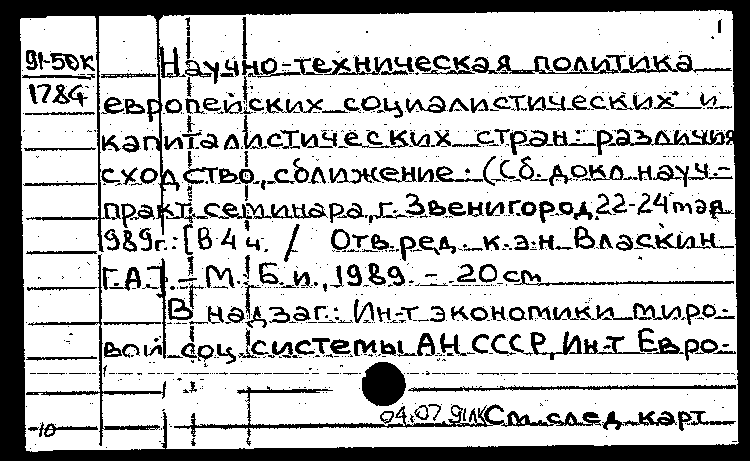 1
91-50К
1784
Научно-техническая политика
европейских социалистических и
капиталистических стран: различия
сходство, сближение: (Сб. докл науч.-
практ. семинара, г. Звенигород, 22-24 мая
1989г.: [В 4 ч. / Отв. ред. к.э.н Власкин
Г.А.]. – М.: Б.и., 1989. – 20 cm
В надзаг.: Ин-т экономики миро-
вой соц. системы АН СССР, Ин-т Евро-
04.07.91
См. след. карт
-10